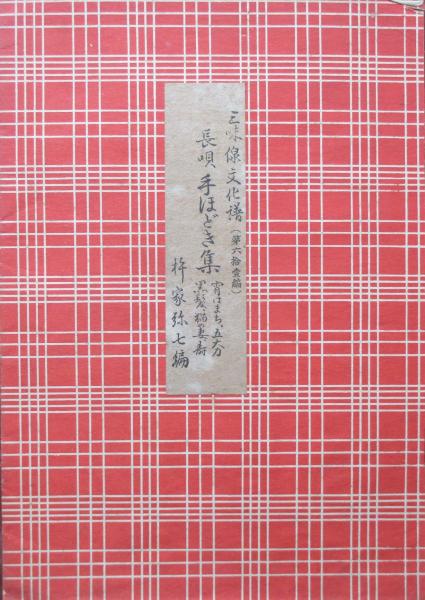 三味線文化譜(第六拾壹編)
長唄 手ほどき集
宵はまち、五大力
黒髪、猫の妻、寿
杵家弥七編